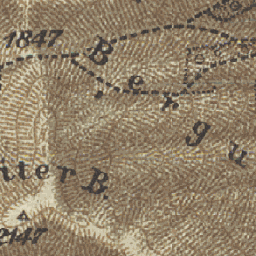 1847
Bergu
iter B.
2147